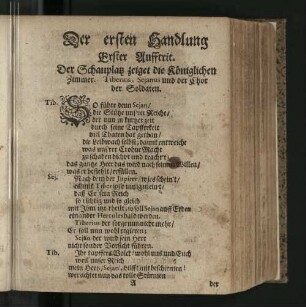 Der ersten Handlung
Erster Aufftrit.
Der Schauplatz zeiget die Königlichen
Zimmer. Tiberius, Sejanus und der Chor
der Soldaten.
Tib. SO führe denn Sejan,
die Stütze unsrer Reiche,
der nun in kurtzer zeit
durch seine Tapfferkeit
viel Thaten hat
die Leibwach selbst, damit entweiche
was unsrer Macht
zu schaden dichtet und
das gantze Heer das wird nach Willen,
was er befiehlt, erfüllen.
Sej. Nach dem der Jupiter, wies scheint,
es mit Tiberio
daß Er sein Reich
so richtig und so gleich
mit Ihm theilt, so soll Sejan auff Erden
ein ander Hercules bald werden.
Tiberius der sorge nun nicht mehr,
Er soll nun wohl regieren;
Sejan der wird sein Heer
nicht sonder Vorsicht führen.
Tib. Ihr tapffres Volck, wohl uns und Euch
weil unser Reich
mein Hertz, Sejan, hilfft mit beschirmen,
wir achten nun das tolle Stürmen
A der